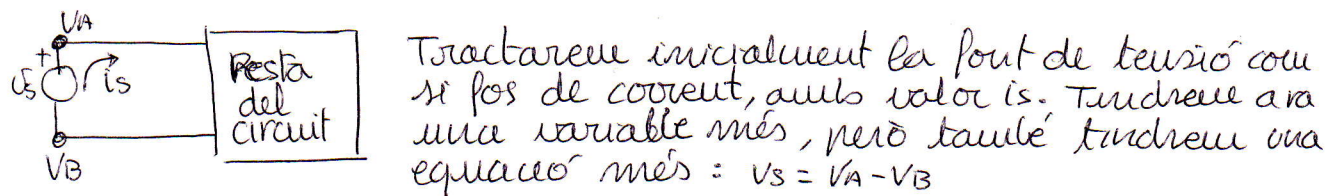 VA
+
vs
is
Resta
del
circuit
VB
Tractarem inicialment la font de tensió com
si fos de corrent, amb valor is. Tindrem ara
una variable més, però també tindrem una
equació més: vs = VA - VB